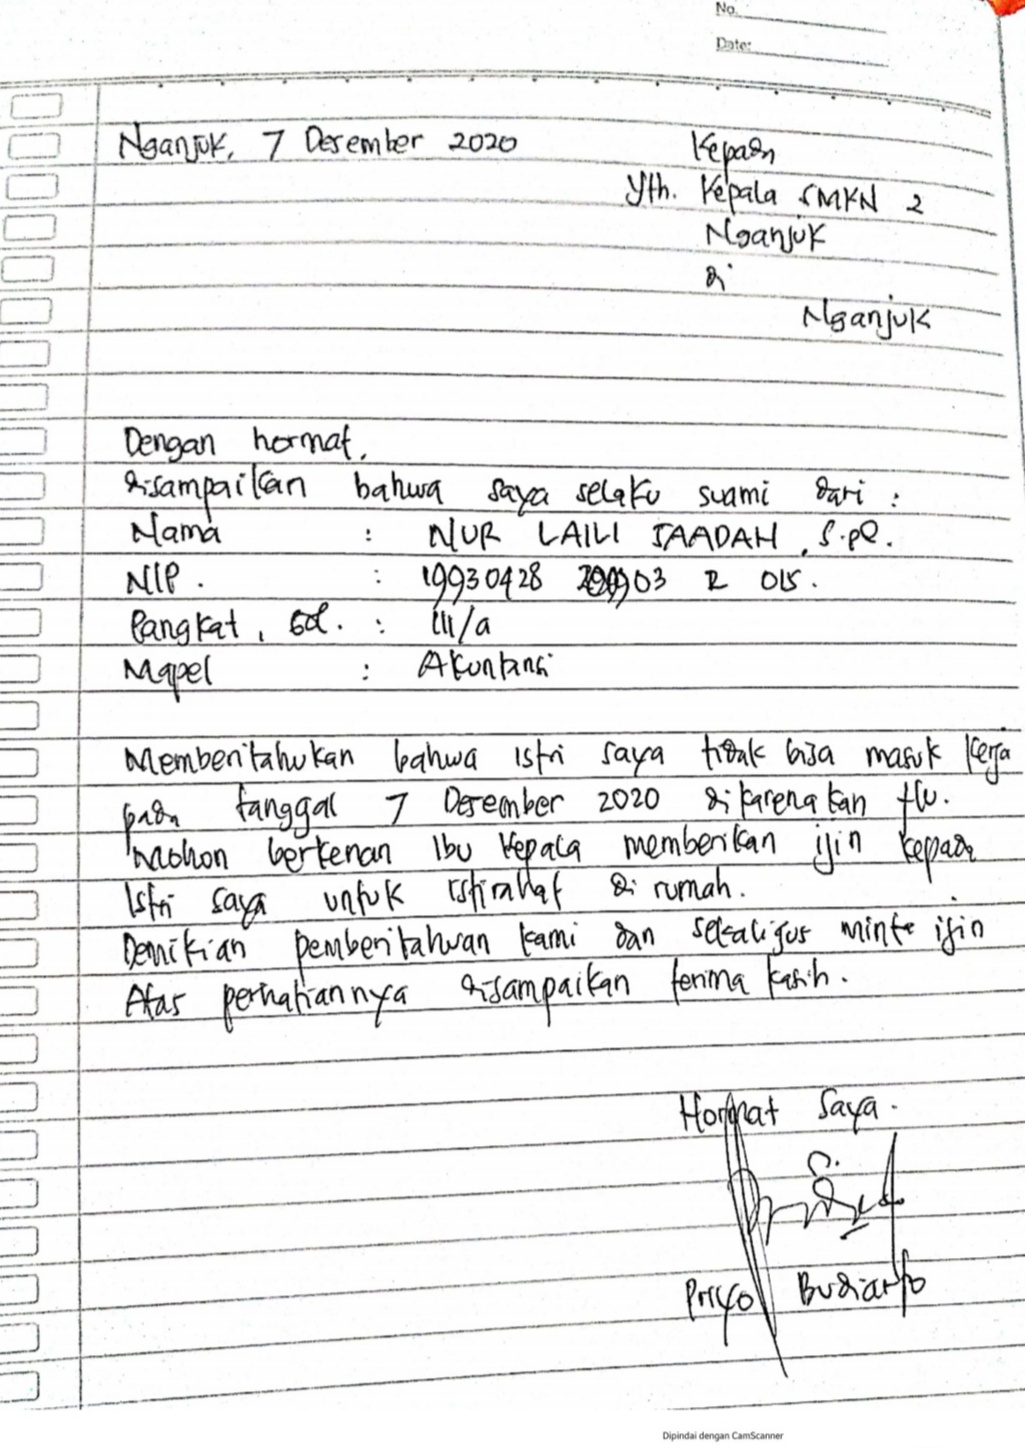 No.
Date:
Nganjuk, 7 Desember 2020
Kepada
Yth. Kepala SMKN 2
Nganjuk
di
Nganjuk
Dengan hormat,
disampaikan bahwa saya selaku suami dari :
Nama : NUR LAILI SAADAH, S.Pd.
NIP. : 19930428 03 2 015.
Pangkat, Gol. : III/a
Mapel : Akuntansi
Memberitahukan bahwa istri saya tidak bisa masuk kerja
pada tanggal 7 Desember 2020 dikarenakan flu.
Mohon berkenan Ibu Kepala memberikan ijin kepada
istri saya untuk istirahat di rumah.
Demikian pemberitahuan kami dan sekaligus minta ijin
Atas perhatiannya disampaikan terima kasih.
Hormat Saya.
Priyo Budiarto
Dipindai dengan CamScanner